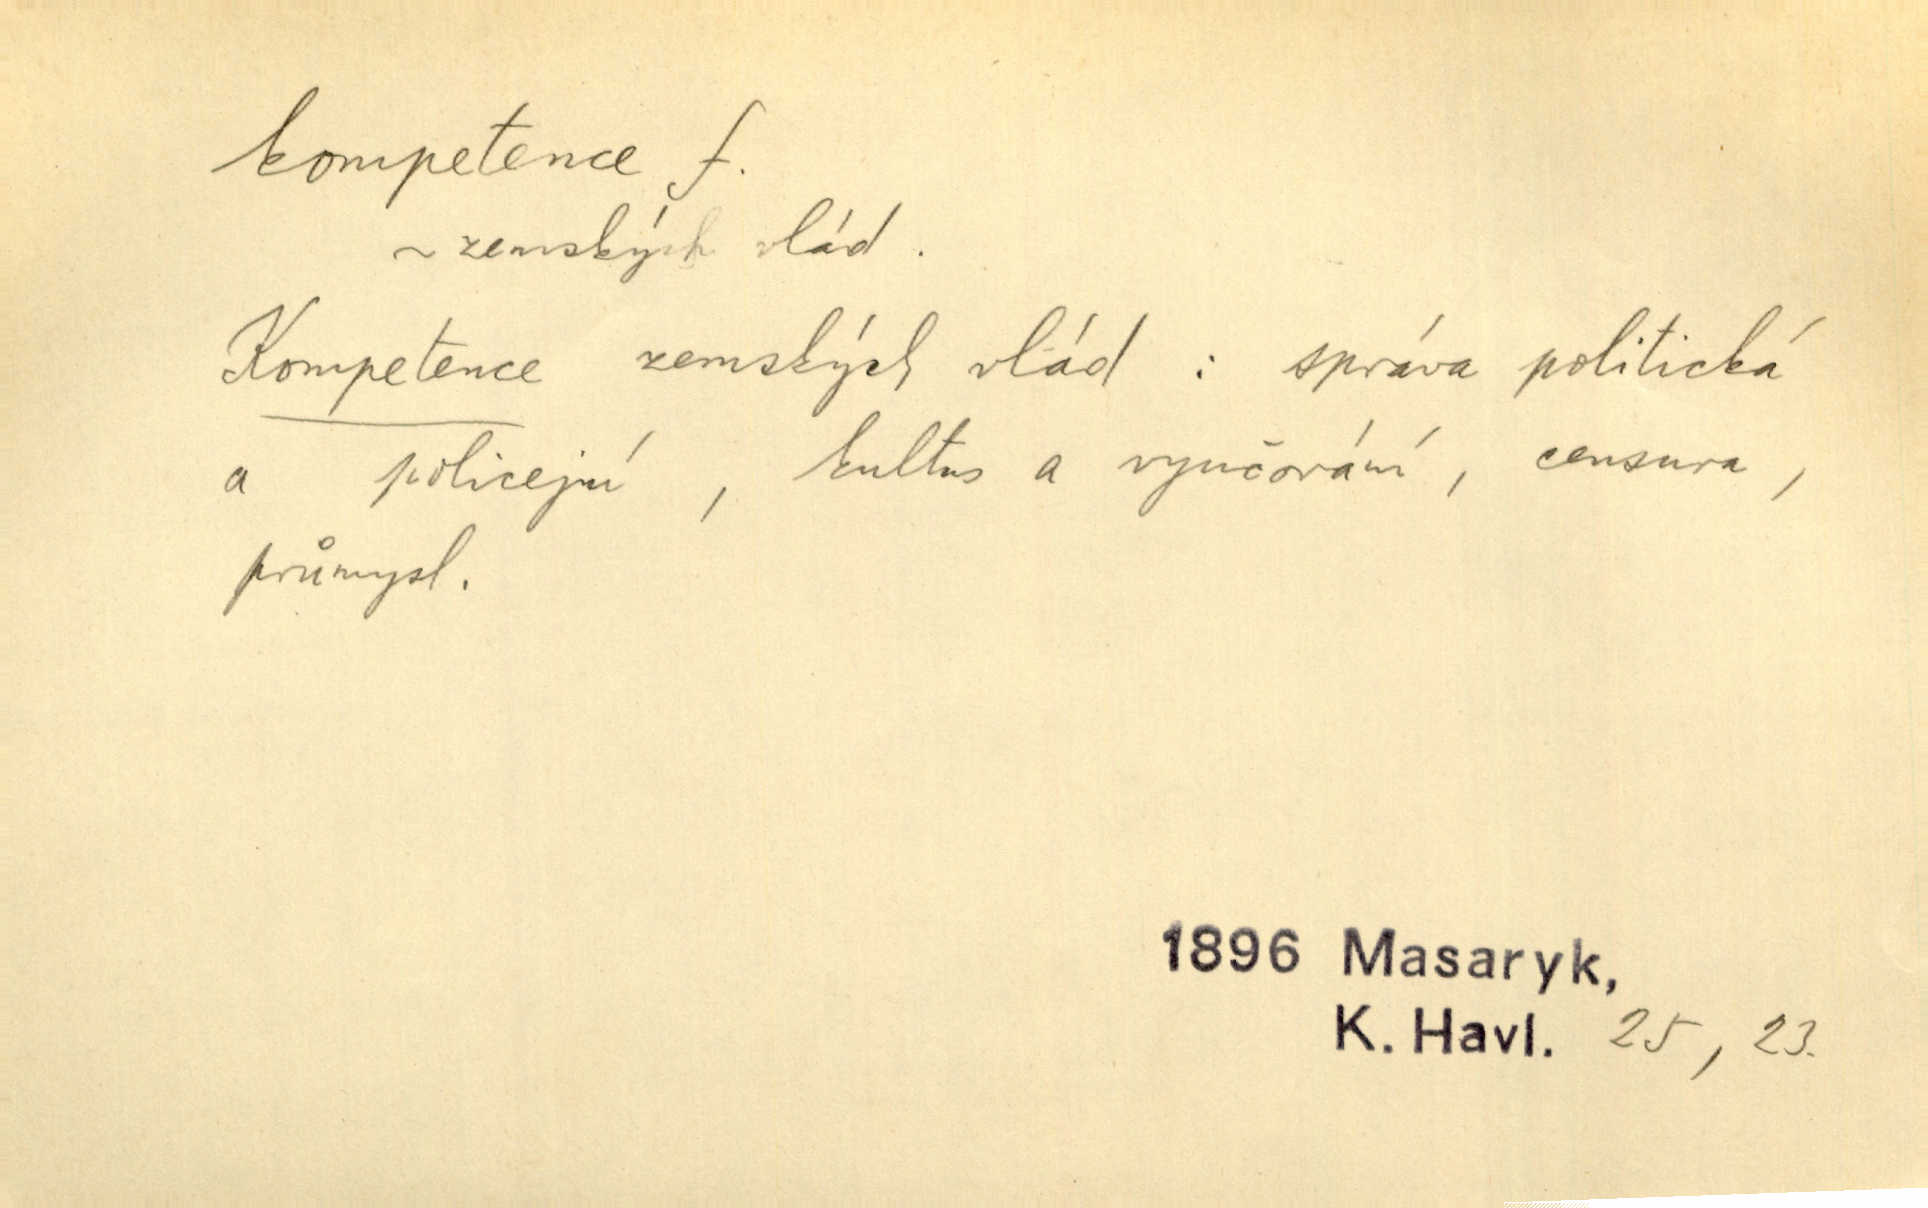 kompetence f.
~ zemských vlád.
Kompetence zemských vlád : správa politická
a policejní, kultus a vyučování, censura,
průmysl.
1896 Masaryk,
K. Havl. 25, 23.